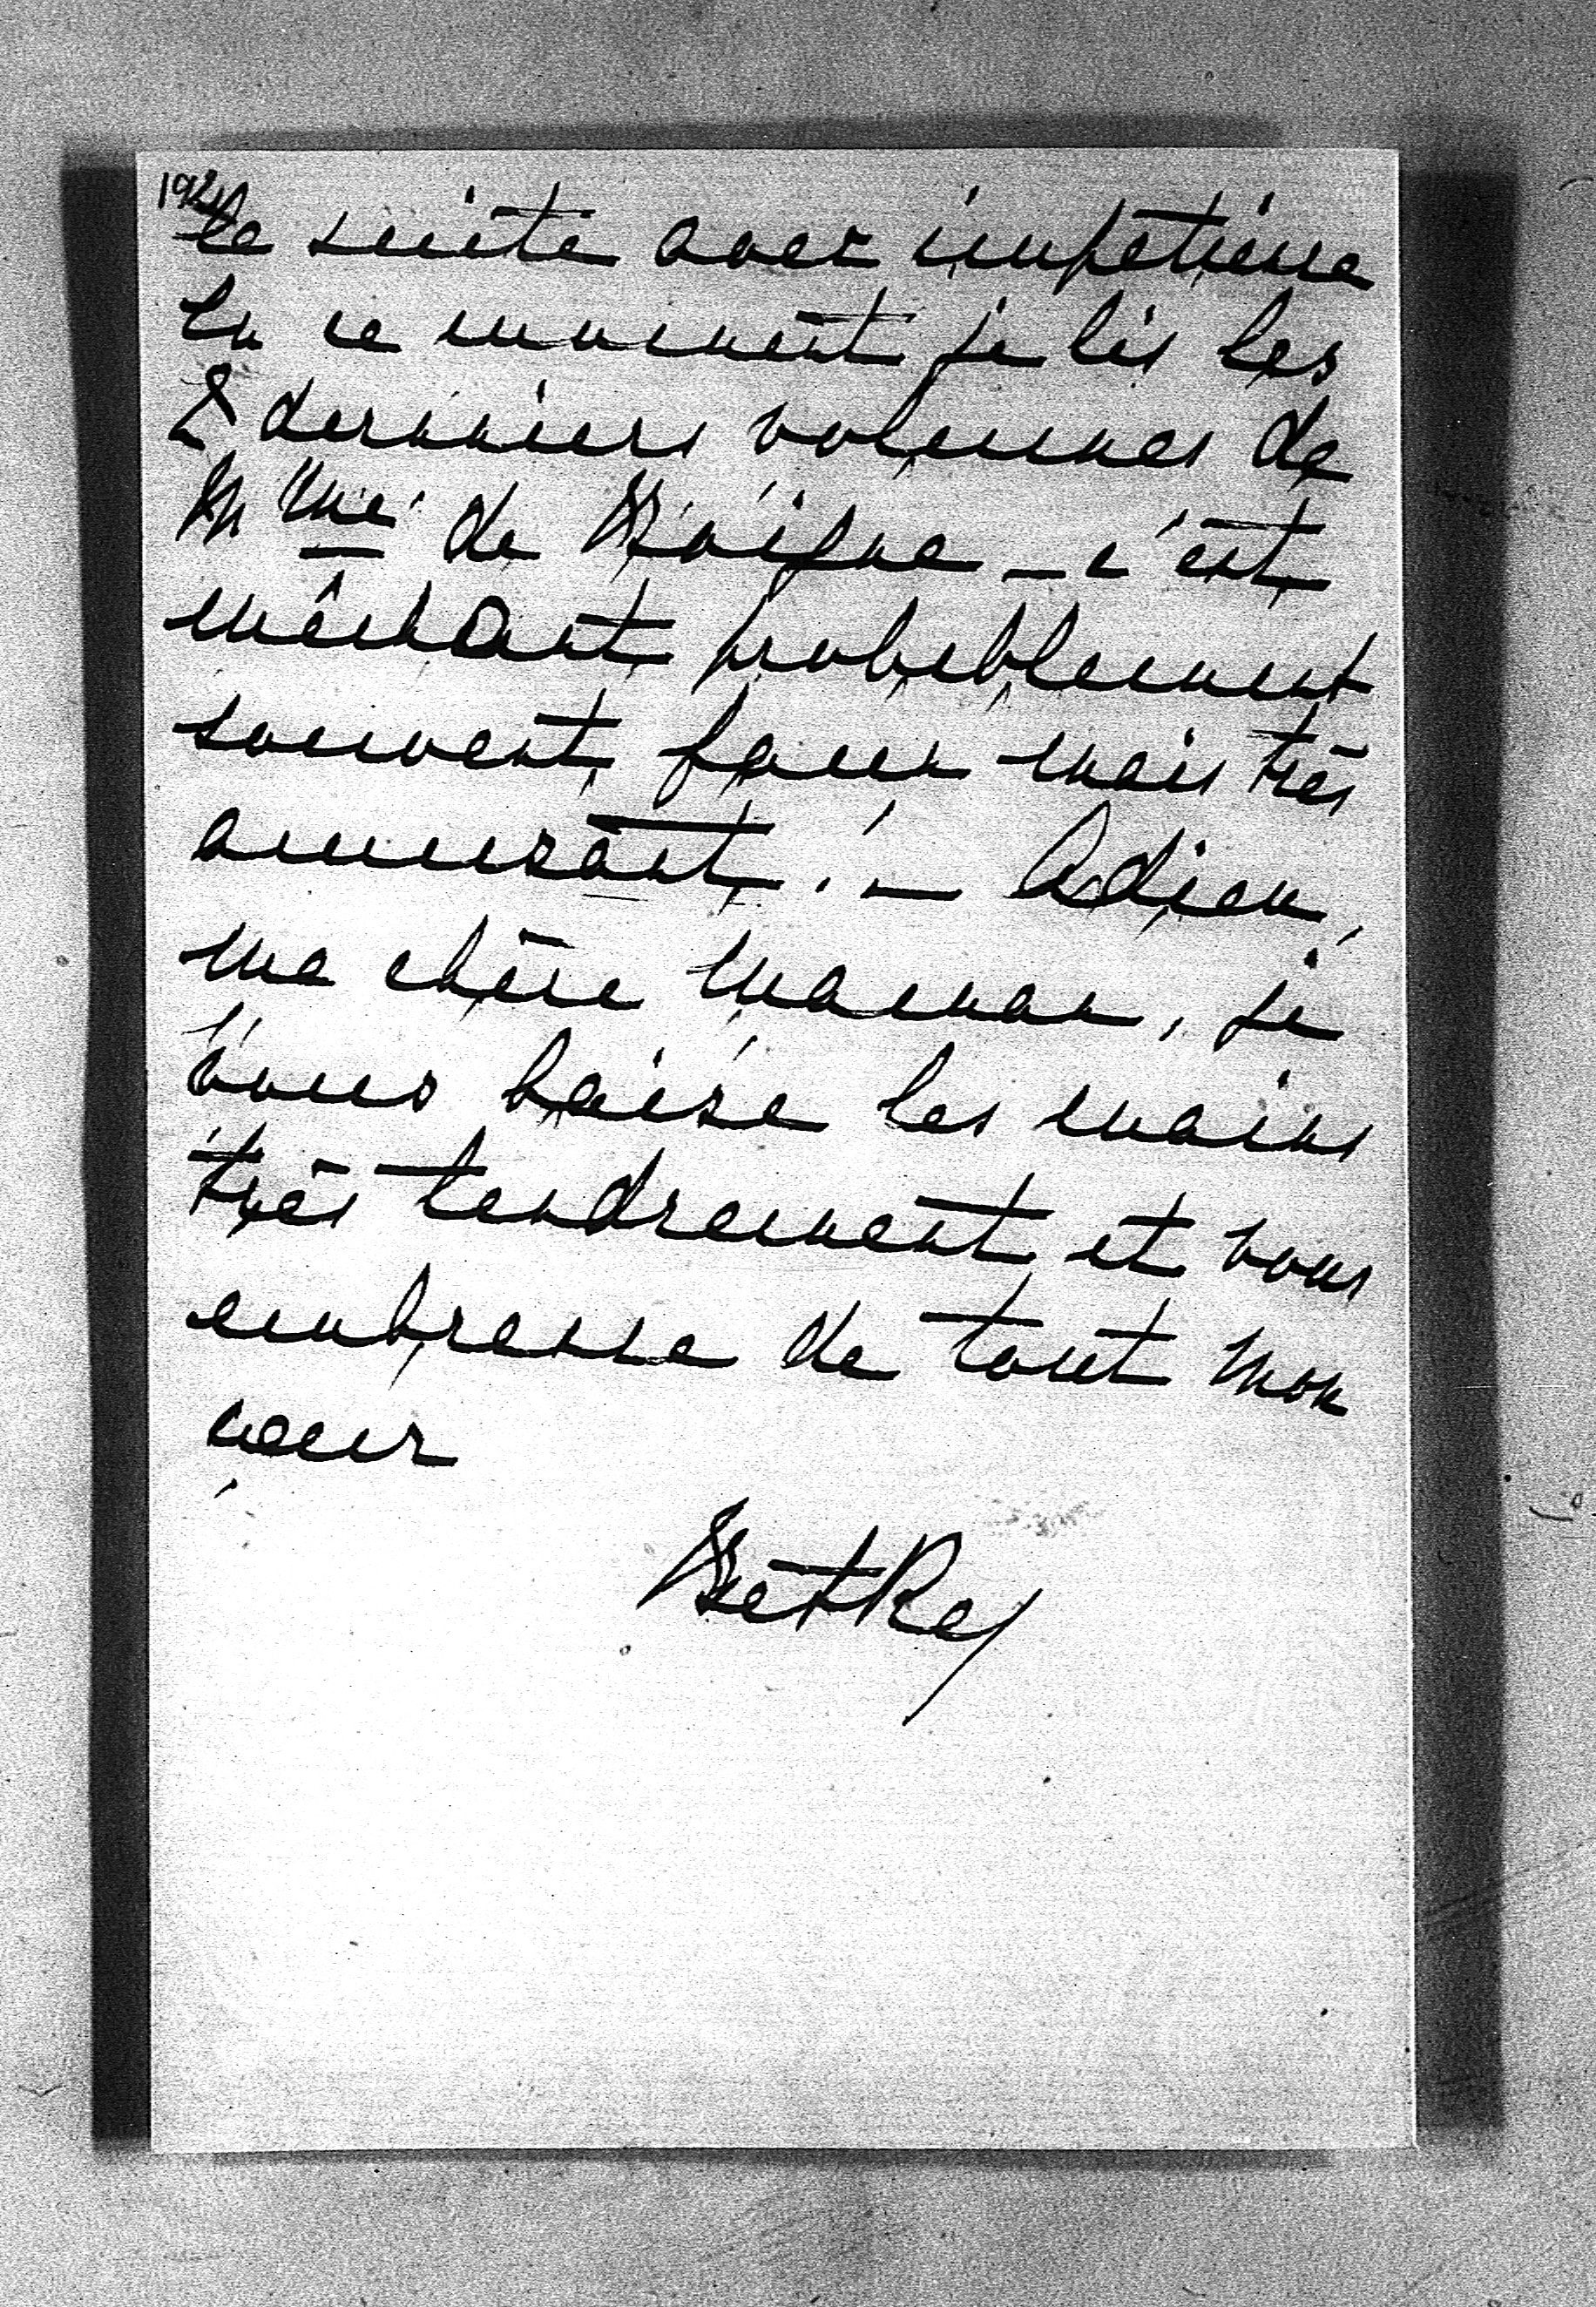 192
la suite avec impatience
En ce moment je lis les
2 derniers volumes de
Mme de Boigne _ c'est
méchant probablement
souvent faux mais très
amusant ! _ Adieu,
ma chère maman, je
vous baise les mains
très tendrement et vous
embrasse de tout mon
coeur